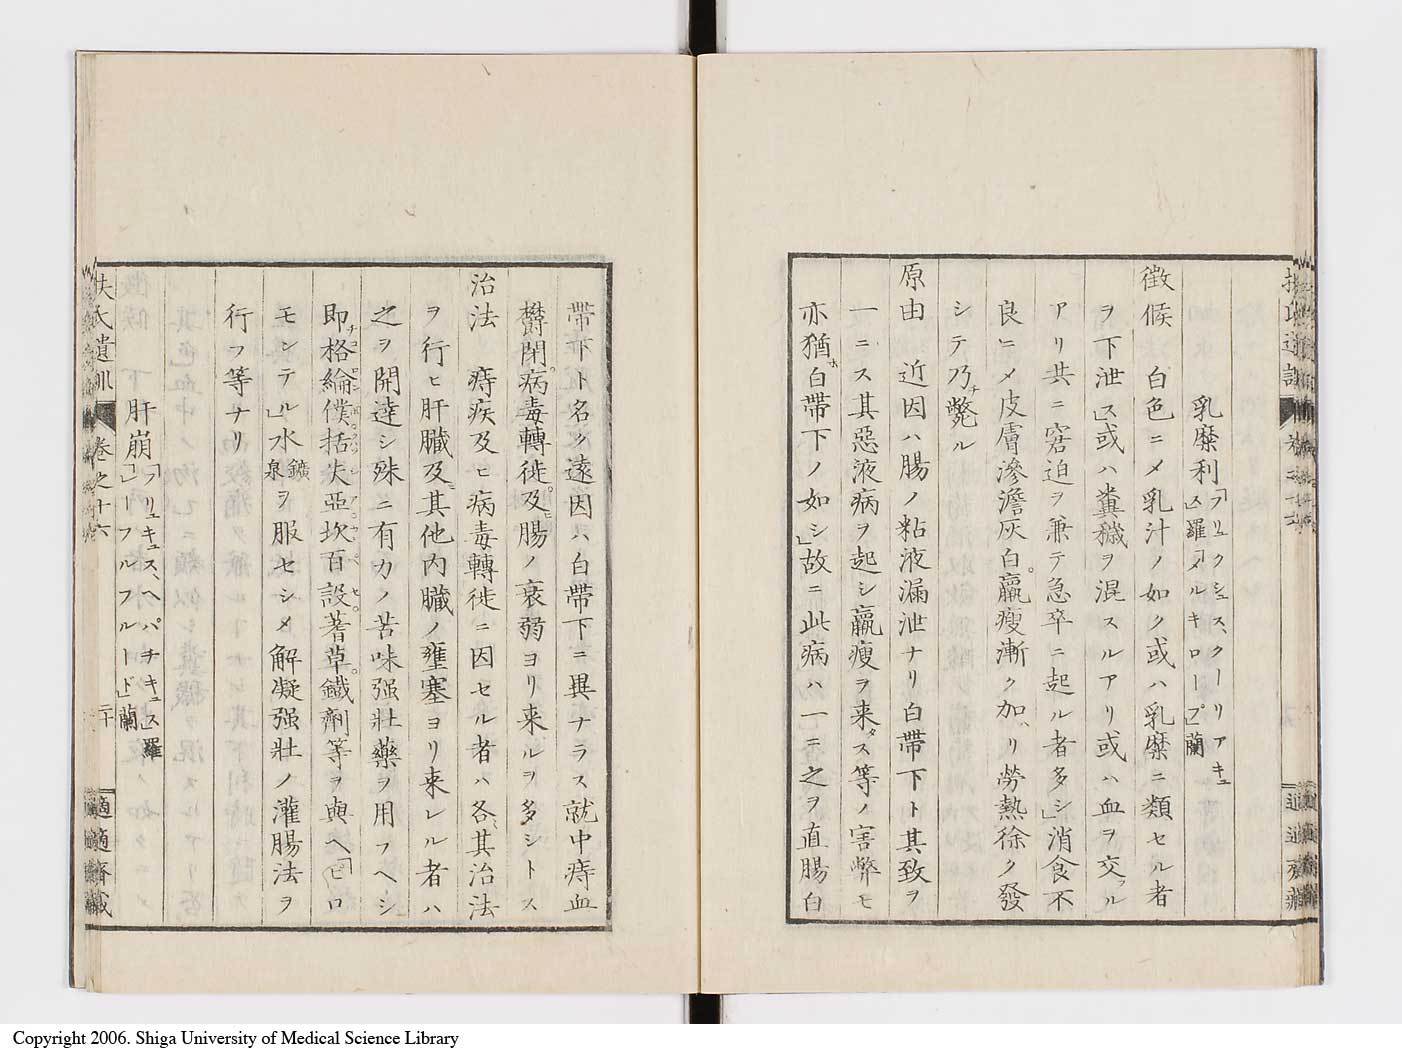 乳糜利「フリュクシュス、クーリアキュス」羅「メルキロープ」蘭
徴候　白色ニメ乳汁ノ如ク或ハ乳糜ニ類セル者
ヲ下泄ス」或ハ糞穢ヲ混スルアリ或ハ血ヲ交フル
アリ共ニ窘迫ヲ兼テ急卒ニ起ル者多シ」消食不
良ニメ皮膚滲澹灰白羸瘦漸ク加ハリ勞熱徐ク發
シテ乃チ斃ル
原由　近因ハ腸ノ粘液漏泄ナリ白帶下ト其致ヲ
一ニス其惡液病ヲ起シ羸瘦ヲ来タス等ノ害弊モ
亦猶ホ白帶下ノ如シ」故ニ此病ハ一ニ之ヲ直腸白
帶下ト名ク遠因ハ白帶下ニ異ナラス就中痔血
欝閉病毒轉徙及ヒ腸ノ衰弱ヨリ来ルヲ多シトス
治法　痔疾及ヒ病毒轉徙ニ因セル者ハ各其治法
ヲ行ヒ肝臓及ヒ其他内臓ノ壅塞ヨリ来レル者ハ
之ヲ開達シ殊ニ有力ノ苦味强壯藥ヲ用フヘシ
即チ格綸僕括失亞坎百設蓍草鐵劑等ヲ與ヘ「ピロ
モンテル」水鑛泉ヲ服セシメ解凝强壯ノ灌腸法ヲ
行フ等ナリ
肝崩「フリュキュス、ヘパチキュス」羅「レーフルフルード」蘭
扶氏遺訓　卷之十六　二十　適適齋藏
Copyright 2006. Shiga University of Medical Science Library